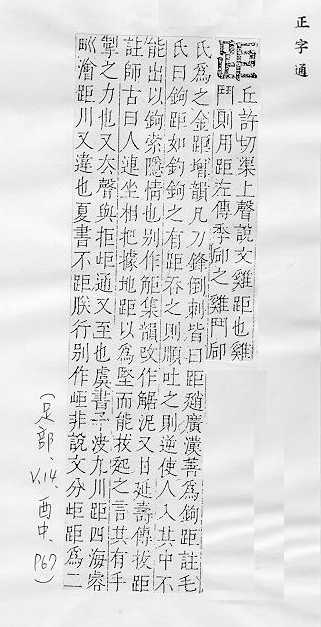 正字通
距 丘許切渠上聲說文雞距也雞
鬥則用距左傳季郈之雞鬥郈
氏爲之金距增韻凡刀鋒倒刺皆曰距趙廣漢善爲鉤距註毛
氏曰鉤距如釣鉤之有距吞之則順吐之則逆使人入其中不
能出以鉤索隱情也別作䶙集韻改作䶙泥又甘延壽傳拔距
註師古曰人連坐相把據地距以爲堅而能拔起之言其有手
掣之力也又去聲與拒岠通又至也虞書予決九川距四海濬
畎澮距川又違也夏書不距朕行別作岠非說文分岠距爲二
(足部、V.14、酉中、P67)